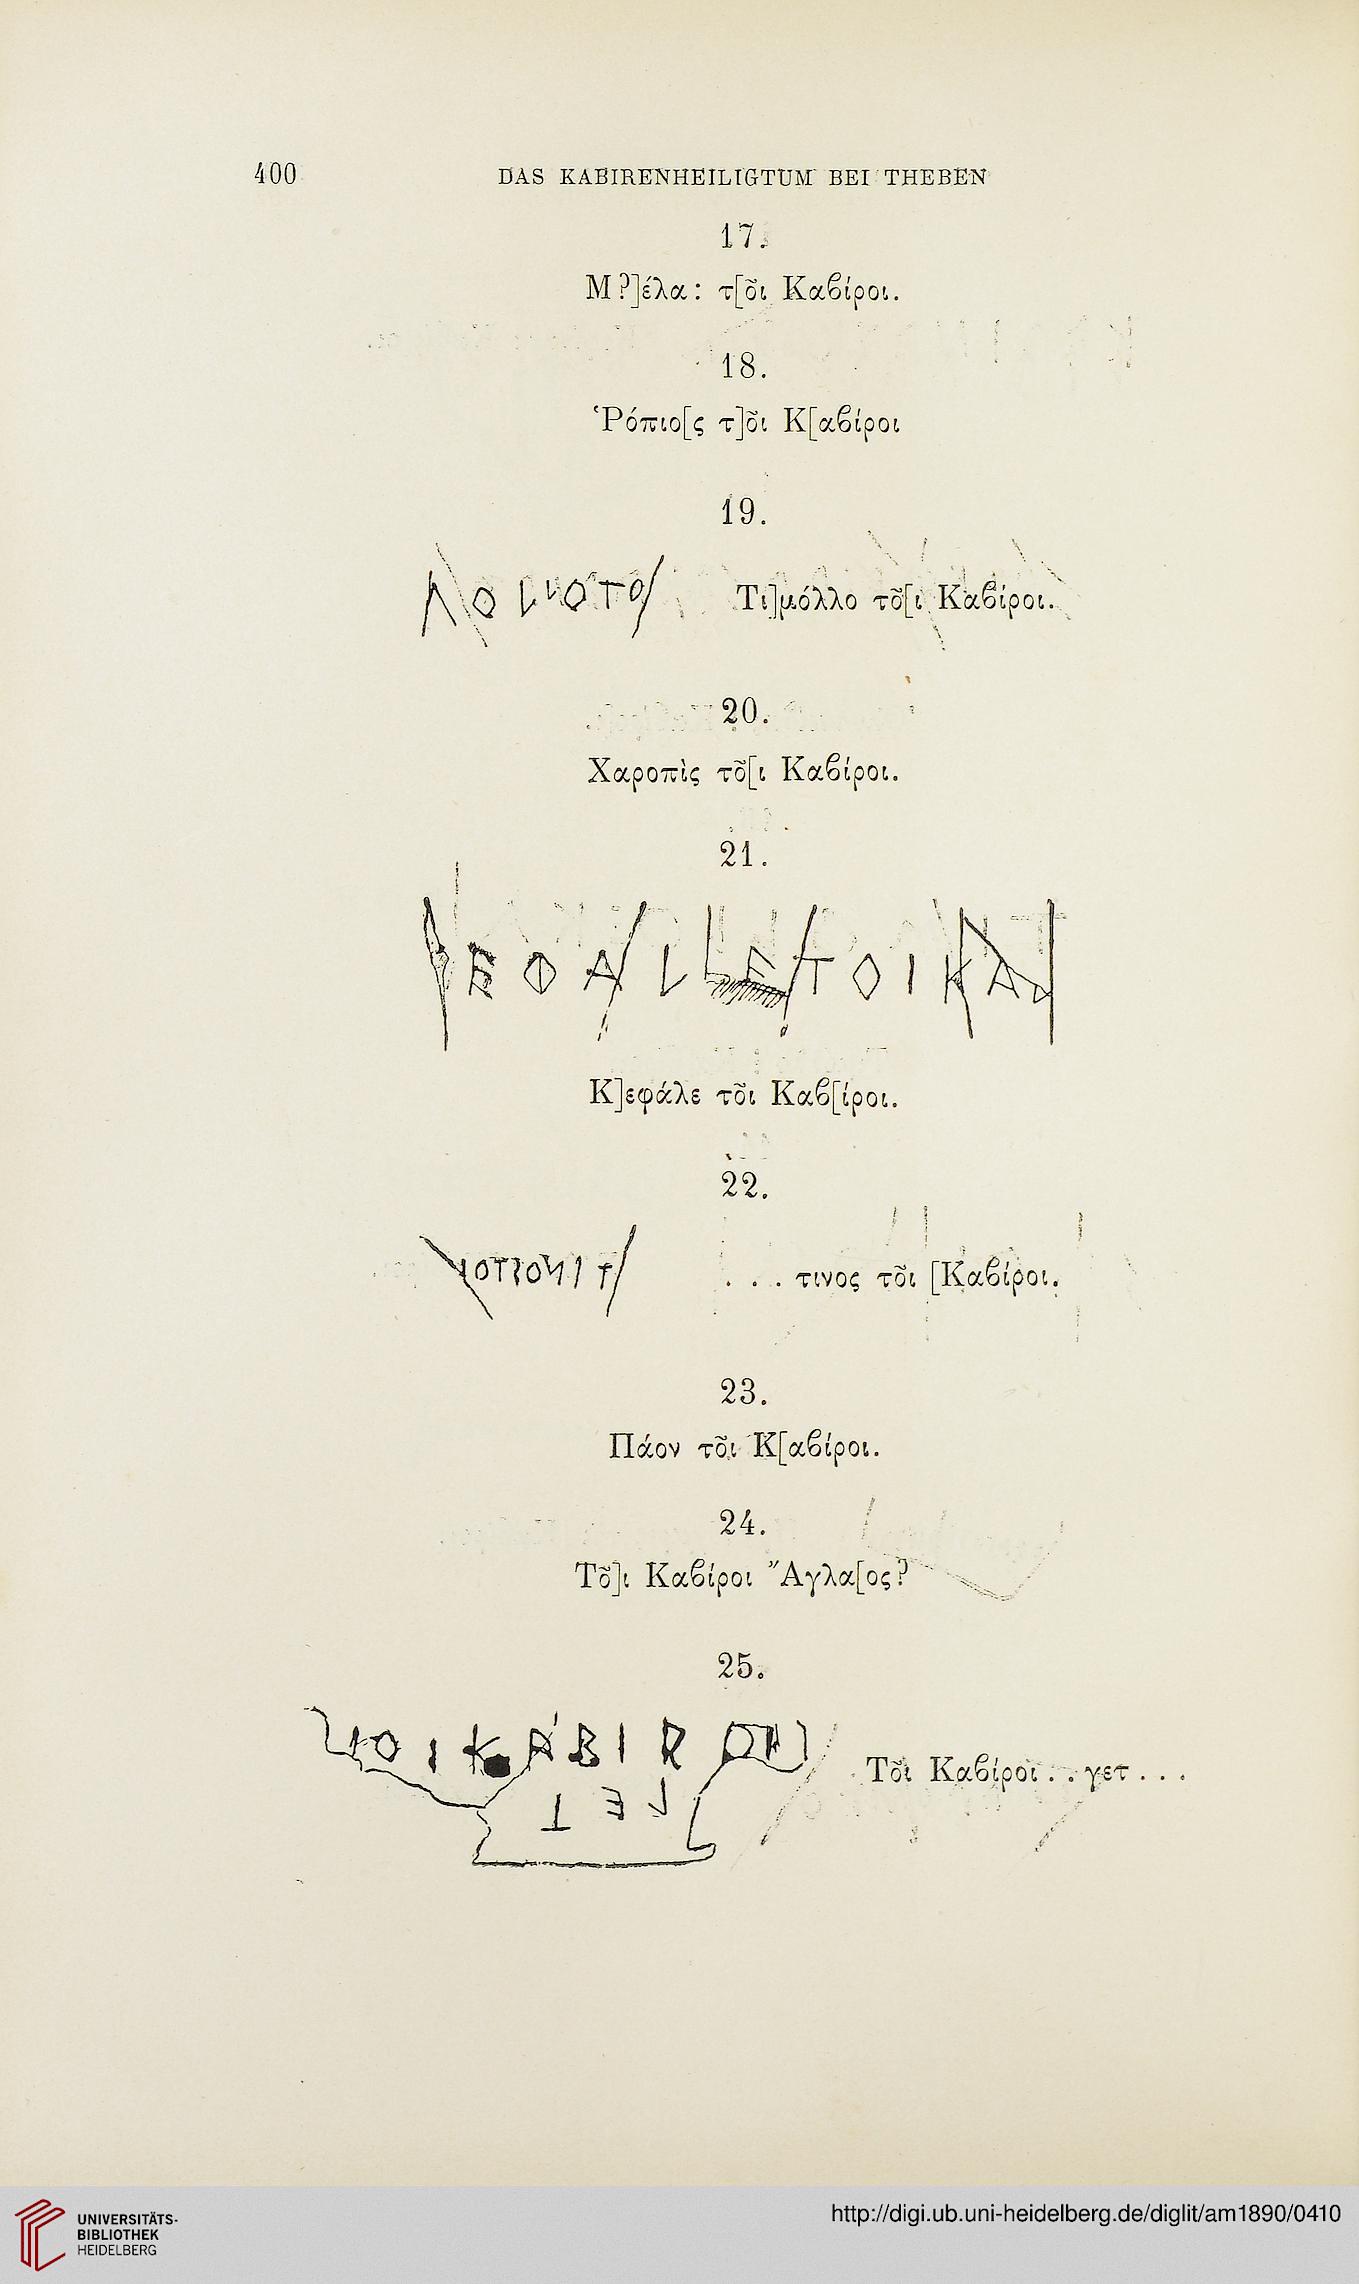 400 DAS KABIRENHEILIGTUM BEI THEBEN
17.
Μ?]έλα: τ[ο͂ι Καβίροι.
18.
Ῥόπιο[ς τ]ο͂ι Κ[αβίροι
19.
Τι]μόλλο το͂[ι Καβίροι.
20.
Χαροπὶς το͂[ι Καβίροι.
21.
ΕΦΑLΕΤΟΙΚΑ
Κ]εφάλε το͂ι Καβ[ίροι.
22.
. . . τινος το͂ι [Καβίροι.
23.
Πάον το͂ι Κ[αβίροι.
24.
Το͂]ι Καβίροι Ἄγλα[ος?
25.
ΤΟΙΚΑΒΙRΟΙ
Το͂ι Καβίροι . . γετ . . .
UNIVERSITÄTS-
BIBLIOTHEK
HEIDELBERG
http://digi.ub.uni-heidelberg.de/diglit/am1890/0410